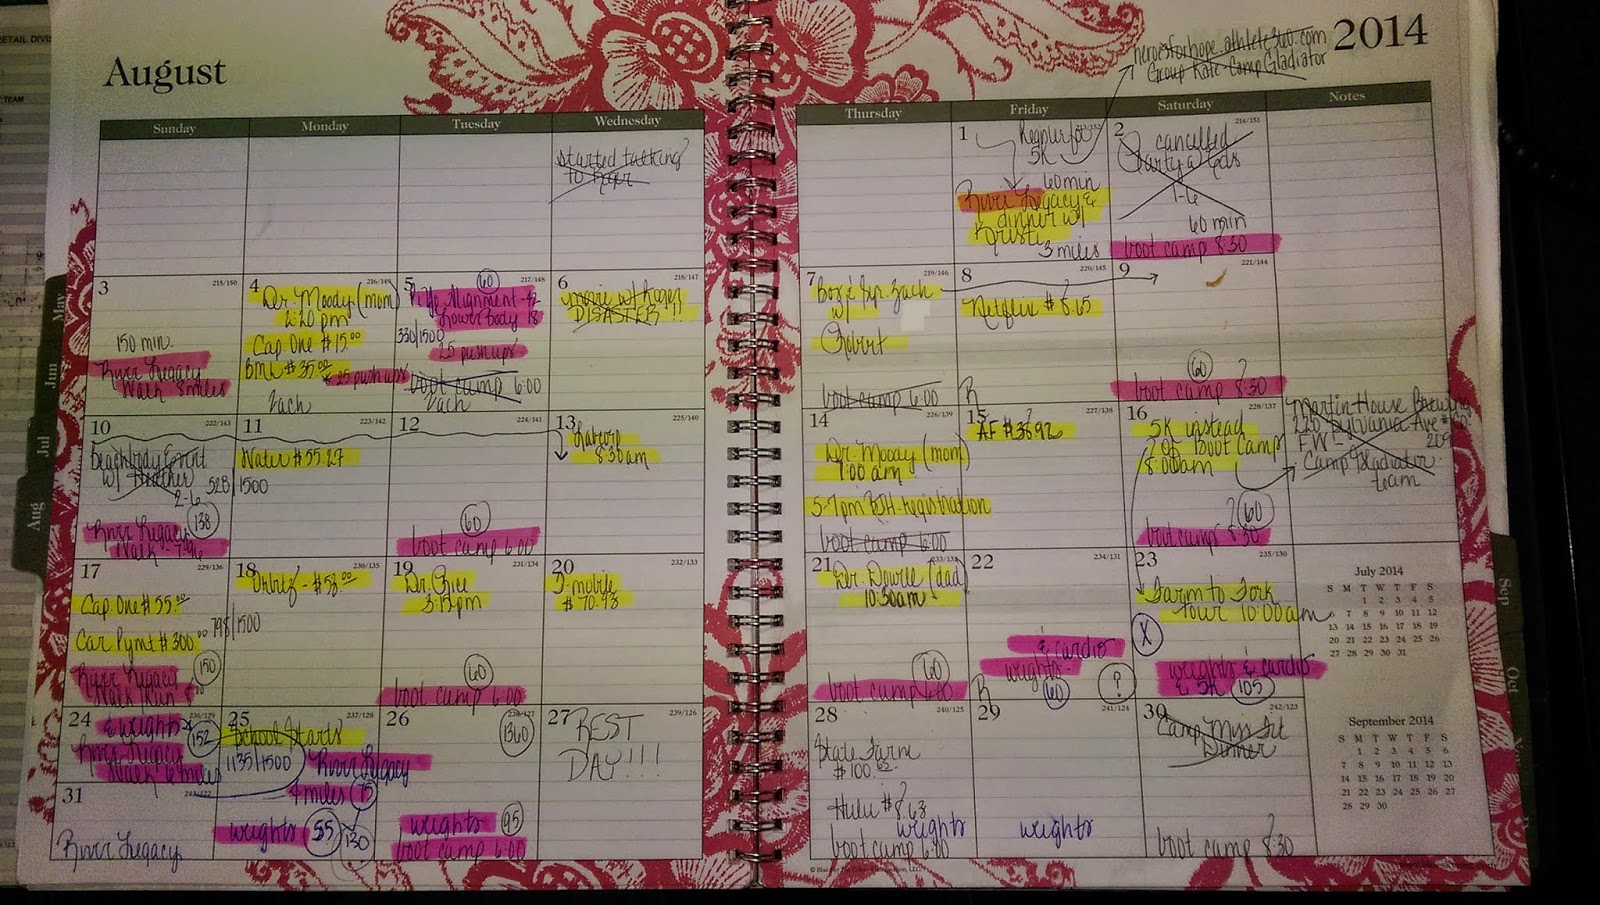 RETAIL DIVIS
TEAM
August
2014
heroesforhope.athlete360.com
Group Kate Camp Gladiator
Sunday
Monday
Tuesday
Wednesday
Thursday
Friday
Saturday
Notes
started talking
to Roger
1
213/152
5K
60 min
River Legacy &
dinner w/
Kristi
3 miles
2
214/151
cancelled
Party w/
1-6
60 min
boot camp 8:30
3
215/150
150 min.
River Legacy
Walk 8 miles
4
216/149
Dr. Moody (mom)
2:20 pm
Cap. One $15.00
BML $35.00
* 25 push ups
Zach
5
217/148
60
Alignment -
Lower body 18
330/1500
25 push ups
boot camp 6:00
Zach
6
218/147
movie w/ Roger
DISASTER!!
7
219/146
Zach
w/
Robert
boot camp 6:00
8
220/145
Netflix $8.65
R
9
221/144
60
?
boot camp 8:30
10
222/143
beachbody Event
w/ Heather
2-6
528/1500
138
River Legacy
Walk -
11
223/142
Water $55.27
12
224/141
60
boot camp 6:00
13
225/140
Labcorp
8:30am
14
226/139
Dr. Moody (mom)
1:00 am
5-7pm registration
boot camp 6:00
15
227/138
?
AF $36.92
16
228/137
5K instead
of Boot Camp
8:00am
? 60
boot camp 8:30
Martin House Brewing
220 Sylvania Ave #
209
FW -
Camp Gladiator
team
17
229/136
Cap. One $55.00
Car Pymt $300.00
798/1500
River Legacy
150
18
230/135
Orbitz - $53.00
19
231/134
Dr. Price
3:15pm
60
boot camp 6:00
20
232/133
T-mobile
$70.93
21
233/132
Dr. Dowre (dad)
10:30am
60
boot camp 6:00
22
234/131
& cardio
weights -
60
?
R
23
235/130
Farm to Fork
tour 10:00am
X
weights & cardio
& 5K 105
24
236/129
& weights
152
River Legacy
Walk 6 miles
25
237/128
School Starts
1135/1500
River Legacy
4 miles 75
weights 55
130
26
238/127
1360
weights 95
boot camp 6:00
27
239/126
BEST
DAY!!!
28
240/125
State Farm
$100.02
Hulu $8.63
weights
boot camp 6:00
29
241/124
weights
30
242/123
Camp
Dinner
?
boot camp 8:30
31
243/122
River Legacy
July 2014
S M T W T F S
1 2 3 4 5
6 7 8 9 10 11 12
13 14 15 16 17 18 19
20 21 22 23 24 25 26
27 28 29 30 31
September 2014
S M T W T F S
1 2 3 4 5 6
7 8 9 10 11 12 13
14 15 16 17 18 19 20
21 22 23 24 25 26 27
28 29 30
May
Jun
Jul
Aug
Sep
Oct